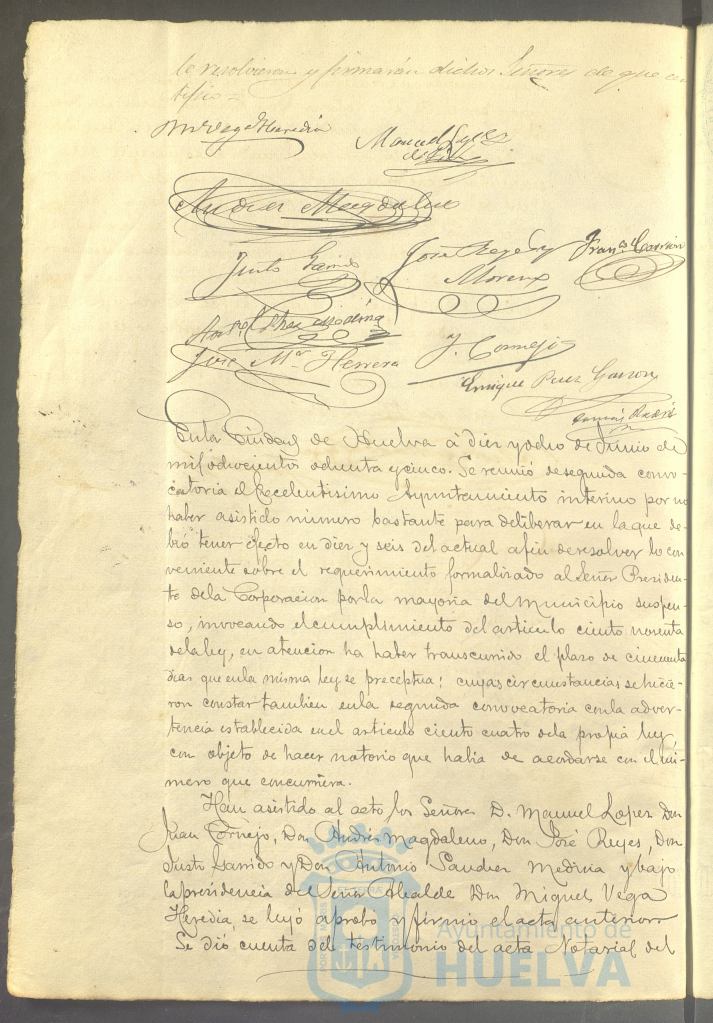 lo resolvieron y firmarán dichos Señores de que cer
tifico =
M. Vega Heredia
Manuel Lopez
Andrés Magdaleno
Justo Garrido
José Reyes y
Moreno
Franco Carrión
Antº Schez Medina
José Mª Herrera
J. Cornejo
Enrique Perez Garzon
En la Ciudad de Huelva à diez y ocho de Junio de
mil ochocientos ochenta y cinco. Se reunió de segunda convo-
catoria el Excelentisimo Ayuntamiento interino por no
haber asistido número bastante para deliberar en la que de-
bió tener efecto en diez y seis del actual a fin de resolver lo con
veniente sobre el requerimiento formalizado al Señor Presiden-
te de la Corporacion por la mayoria del Municipio suspen-
so, invocando el cumplimiento del articulo ciento noventa
de la ley, en atencion ha haber transcurrido el plazo de cincuenta
dias que en la misma ley se preceptua; cuyas circunstancias se hicie-
ron constar tambien en la segunda convocatoria con la adver-
tencia establecida en el articulo ciento cuatro de la propia ley
con objeto de hacer notorio que habia de acordarse con el nú-
mero que concurriera.
Han asistido al acto los Señores D. Manuel Lopez Don
Juan Cornejo, Don Andrés Magdaleno, Don José Reyes, Don
Justo Garrido y Don Antonio Sanchez Medina y bajo
la presidencia del Señor Alcalde Don Miguel Vega
Heredia, se leyó aprobó y firmó el acta anterior
Se dió cuenta del testimonio del acta Notarial del
Ayuntamiento de
HUELVA